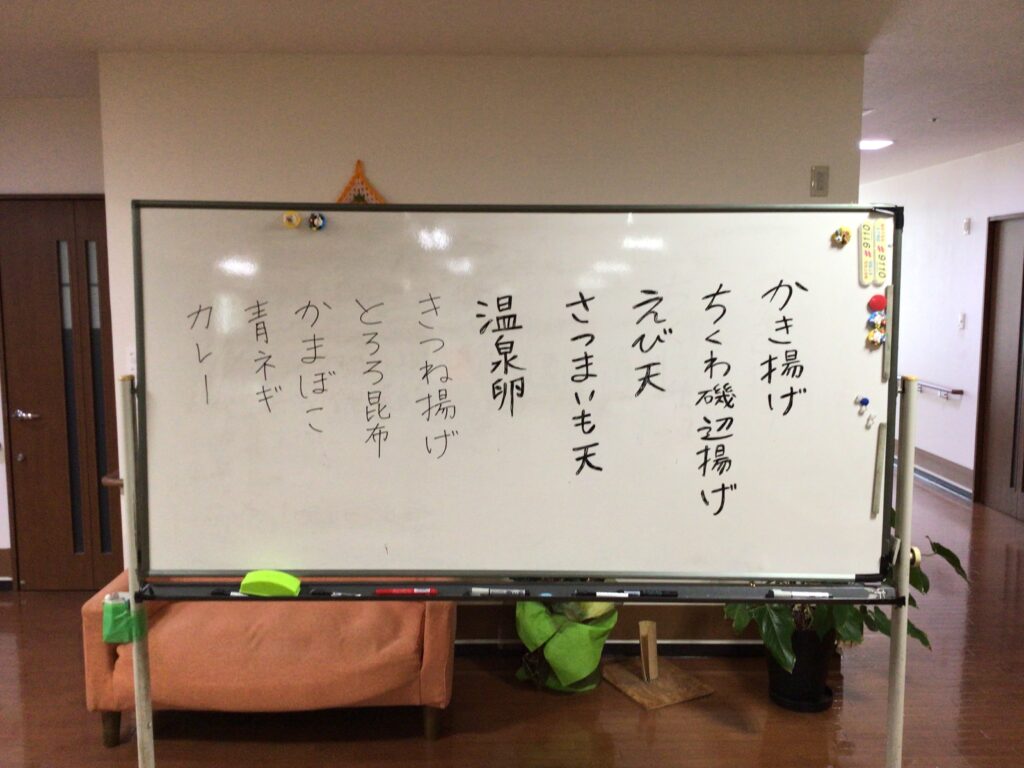 かき揚げ
ちくわ磯辺揚げ
えび天
さつまいも天
温泉卵
きつね揚げ
とろろ昆布
かまぼこ
青ネギ
カレー
#9110